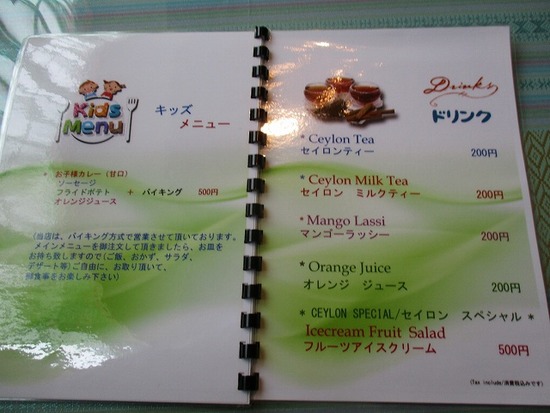 Kids
Menu
キッズ
メニュー
* お子様カレー(甘口)
ソーセージ
フライドポテト + バイキング 500円
オレンジジュース
(当店は、バイキング方式で営業させて頂いております。
メインメニューを御注文して頂きましたら、お皿を
お持ち致しますので(ご飯、おかず、サラダ、
デザート等)ご自由に、お取り頂いて、
御食事をお楽しみ下さい)
Drinks
ドリンク
* Ceylon Tea
セイロンティー 200円
* Ceylon Milk Tea
セイロン ミルクティー 200円
* Mango Lassi
マンゴーラッシー 200円
* Orange Juice
オレンジ ジュース 200円
* CEYLON SPECIAL/セイロン スペシャル *
Icecream Fruit Salad
フルーツアイスクリーム 500円
(Tax include/消費税込みです)